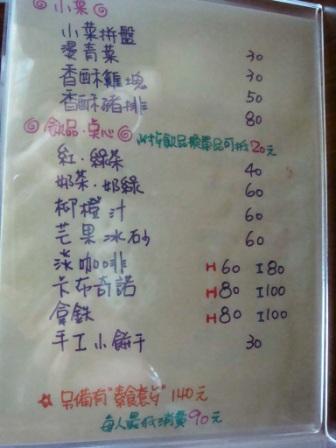 小菜
小菜拼盤 30
燙青菜 30
香酥雞塊 50
香酥豬排 80
飲品.桌心 以上飲品擬單品可抵20元
紅.綠茶 40
奶茶.奶綠 60
柳橙汁 60
芒果冰砂 60
淡咖啡 H60 I80
卡布奇諾 H80 I100
拿鐵 H80 I100
手工小餅干 30
☆ 另備有"素食套餐" 140元
每人最低消費90元